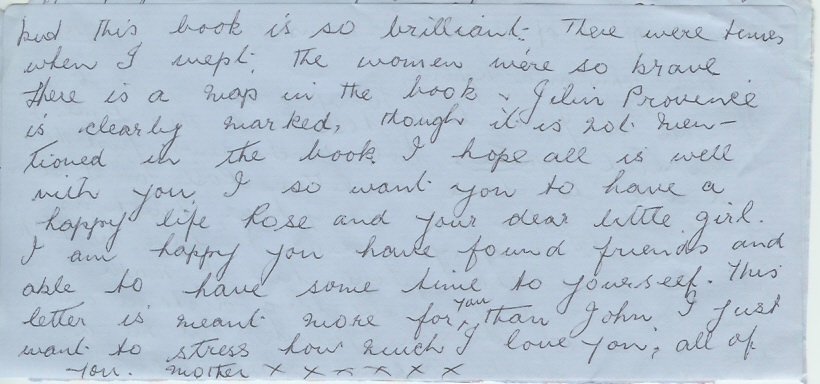 but this book is so brilliant. There were times
when I wept. The women were so brave
There is a map in the book & Jilin Provence
is clearly marked, though it is not men-
tioned in the book. I hope all is well
with you. I so want you to have a
happy life Rose and your dear little girl.
I am happy you have found friends and
able to have some time to yourself. This
letter is meant more for you than John I just
want to stress how much I love you; all of
you. Mother x x x x x x